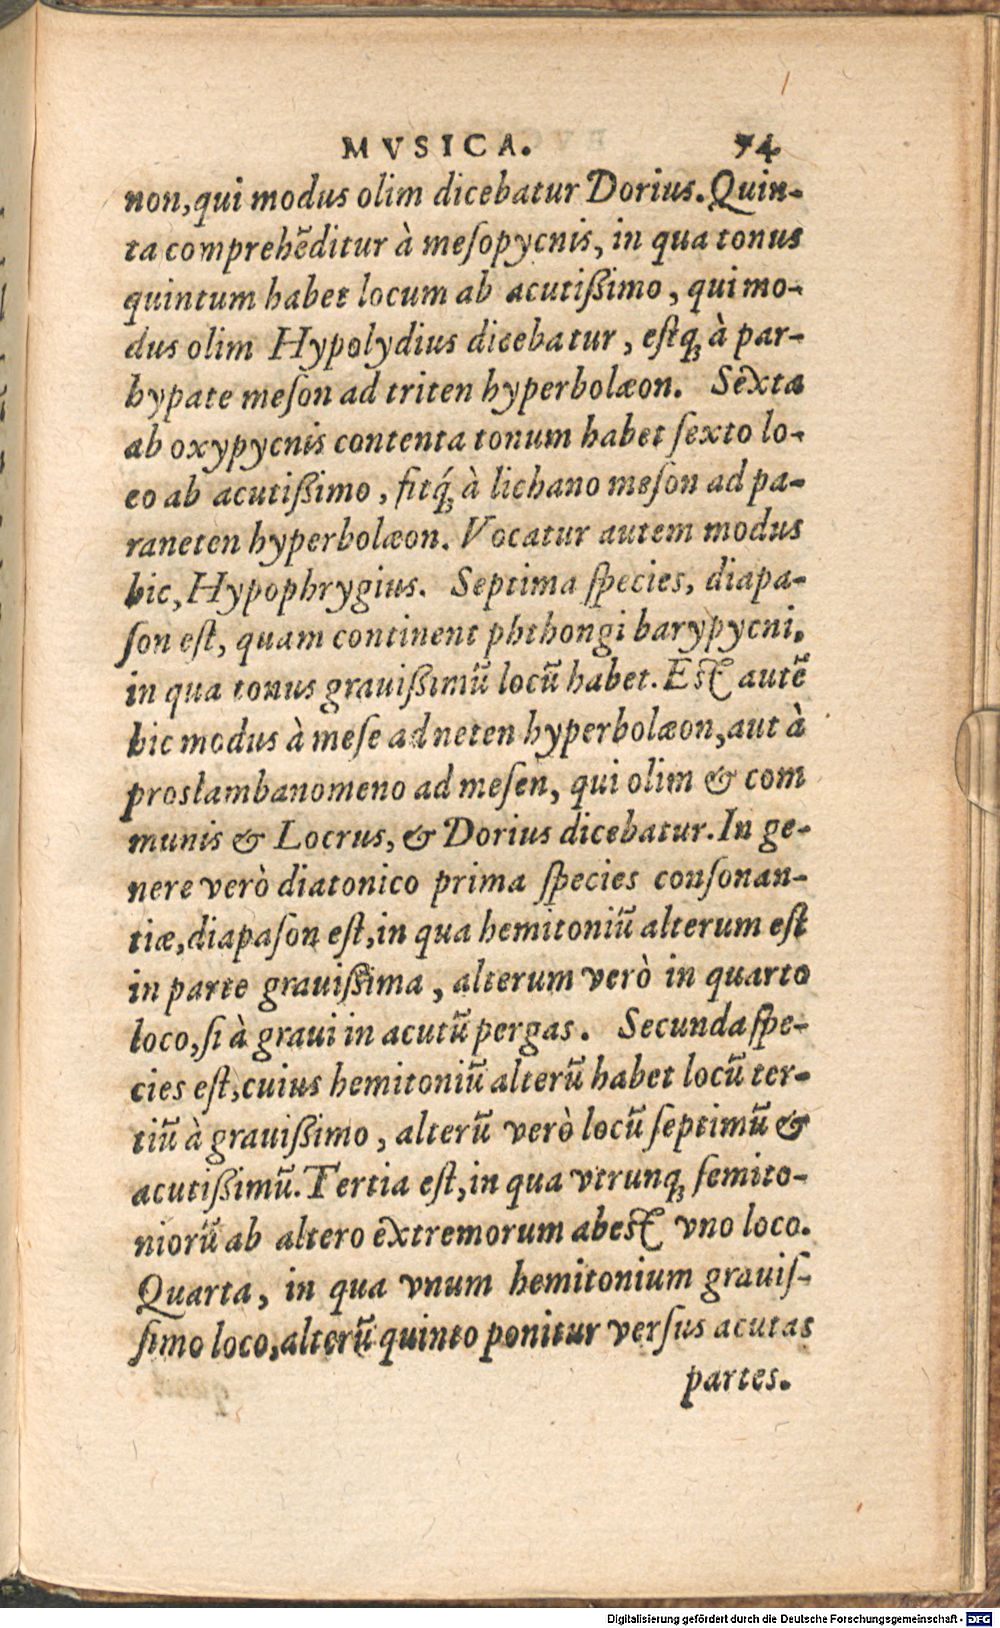 MVSICA. 74
non, qui modus olim dicebatur Dorius. Quin-
ta comprehẽditur à mesopycnis, in qua tonus
quintum habet locum ab acutißimo, qui mo-
dus olim Hypolydius dicebatur, estq; à par-
hypate meson ad triten hyperbolæon. Sexta
ab oxypycnis contenta tonum habet sexto lo-
co ab acutißimo, fitq́; à lichano meson ad pa-
raneten hyperbolæon. Vocatur autem modus
hic, Hypophrygius. Septima species, diapa-
son est, quam continent phthongi barypycni,
in qua tonus grauißimũ locũ habet. Est autẽ
hic modus à mese ad neten hyperbolæon, aut à
proslambanomeno ad mesen, qui olim & com
munis & Locrus, & Dorius dicebatur. In ge-
nere verò diatonico prima species consonan-
tiæ, diapason est, in qua hemitoniũ alterum est
in parte grauißima, alterum verò in quarto
loco, si à graui in acutũ pergas. Secunda spe-
cies est, cuius hemitoniũ alterũ habet locũ ter-
tiũ à grauißimo, alterũ verò locũ septimũ &
acutißimũ. Tertia est, in qua vtrunq; semito-
niorũ ab altero extremorum abest vno loco.
Quarta, in qua vnum hemitonium grauis-
simo loco, alterũ quinto ponitur versus acutas
partes.
Digitalisierung gefördert durch die Deutsche Forschungsgemeinschaft - DFG